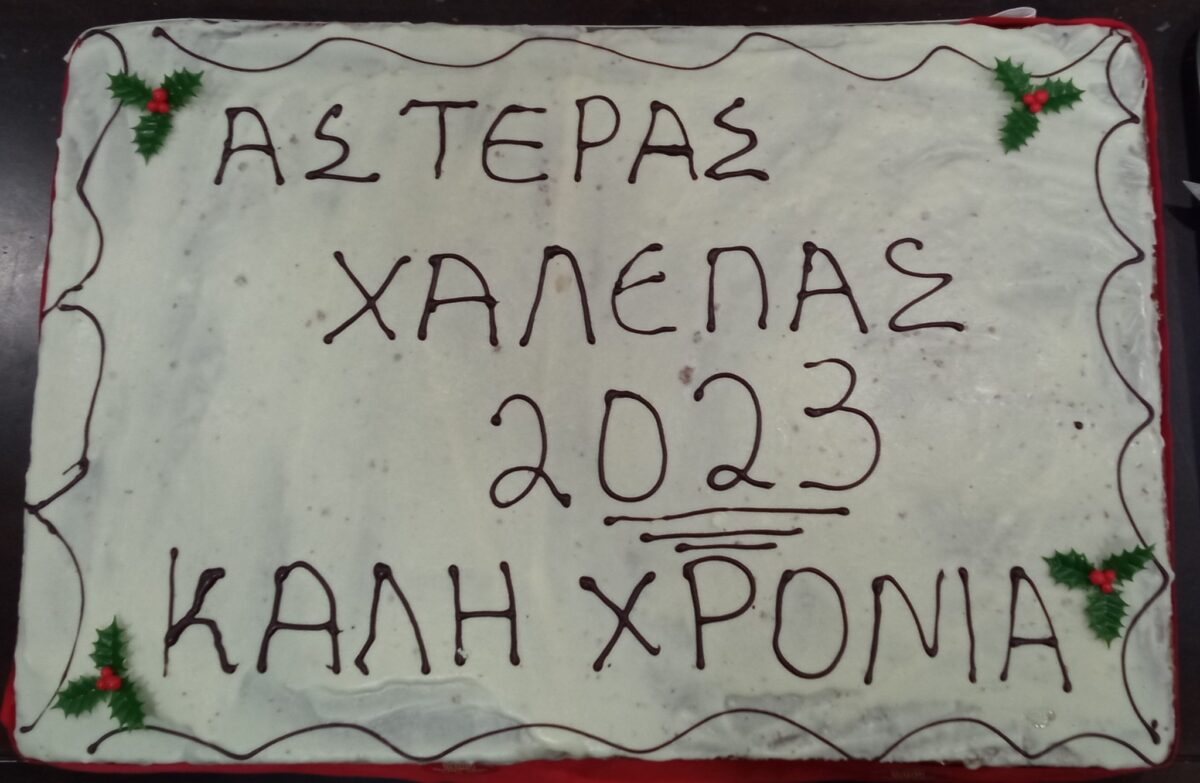 ΑΣΤΕΡΑΣ
ΧΑΛΕΠΑΣ
2023
ΚΑΛΗ ΧΡΟΝΙΑ